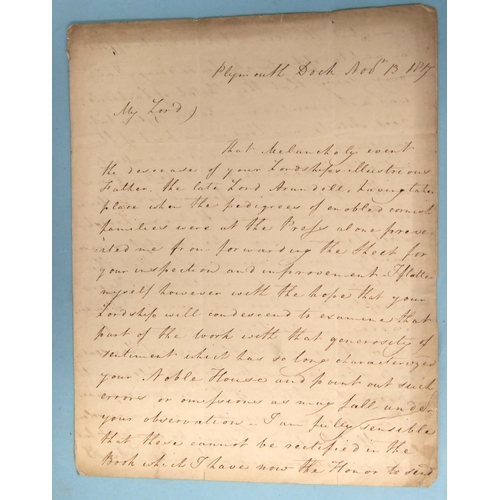 Plymouth Dock Novr 13 1817
My Lord,
That Melancholy event
the descease of your Lordships illustrious
Father, the late Lord Arundell, having taken
place when the pedigrees of enobled
families were at the Press alone preven
ted me from forwarding the sheet for
your inspection and improvement. I flatter
myself however with the hope that your
Lordship will condescend to examine that
part of the work with that generosity of
sentiment which has so long characterized
your Noble House and point out such
errors or omissions as may fall under
your observation. I am fully sensible
that these cannot be rectified in the
Book which I have now the Honor to send